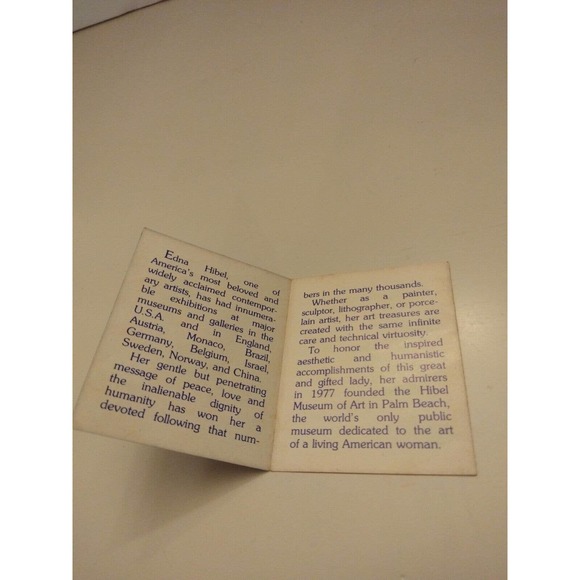 Edna Hibel, one of
America's most beloved and
widely acclaimed contempor-
ary artists, has had innumera-
ble exhibitions at major
museums and galleries in the
U.S.A. and in England,
Austria, Monaco, Brazil,
Germany, Belgium, Israel,
Sweden, Norway, and China.
Her gentle but penetrating
message of peace, love and
the inalienable dignity of
humanity has won her a
devoted following that num-
bers in the many thousands.
Whether as a painter,
sculptor, lithographer, or porce-
lain artist, her art treasures are
created with the same infinite
care and technical virtuosity.
To honor the inspired
aesthetic and humanistic
accomplishments of this great
and gifted lady, her admirers
in 1977 founded the Hibel
Museum of Art in Palm Beach,
the world's only public
museum dedicated to the art
of a living American woman.